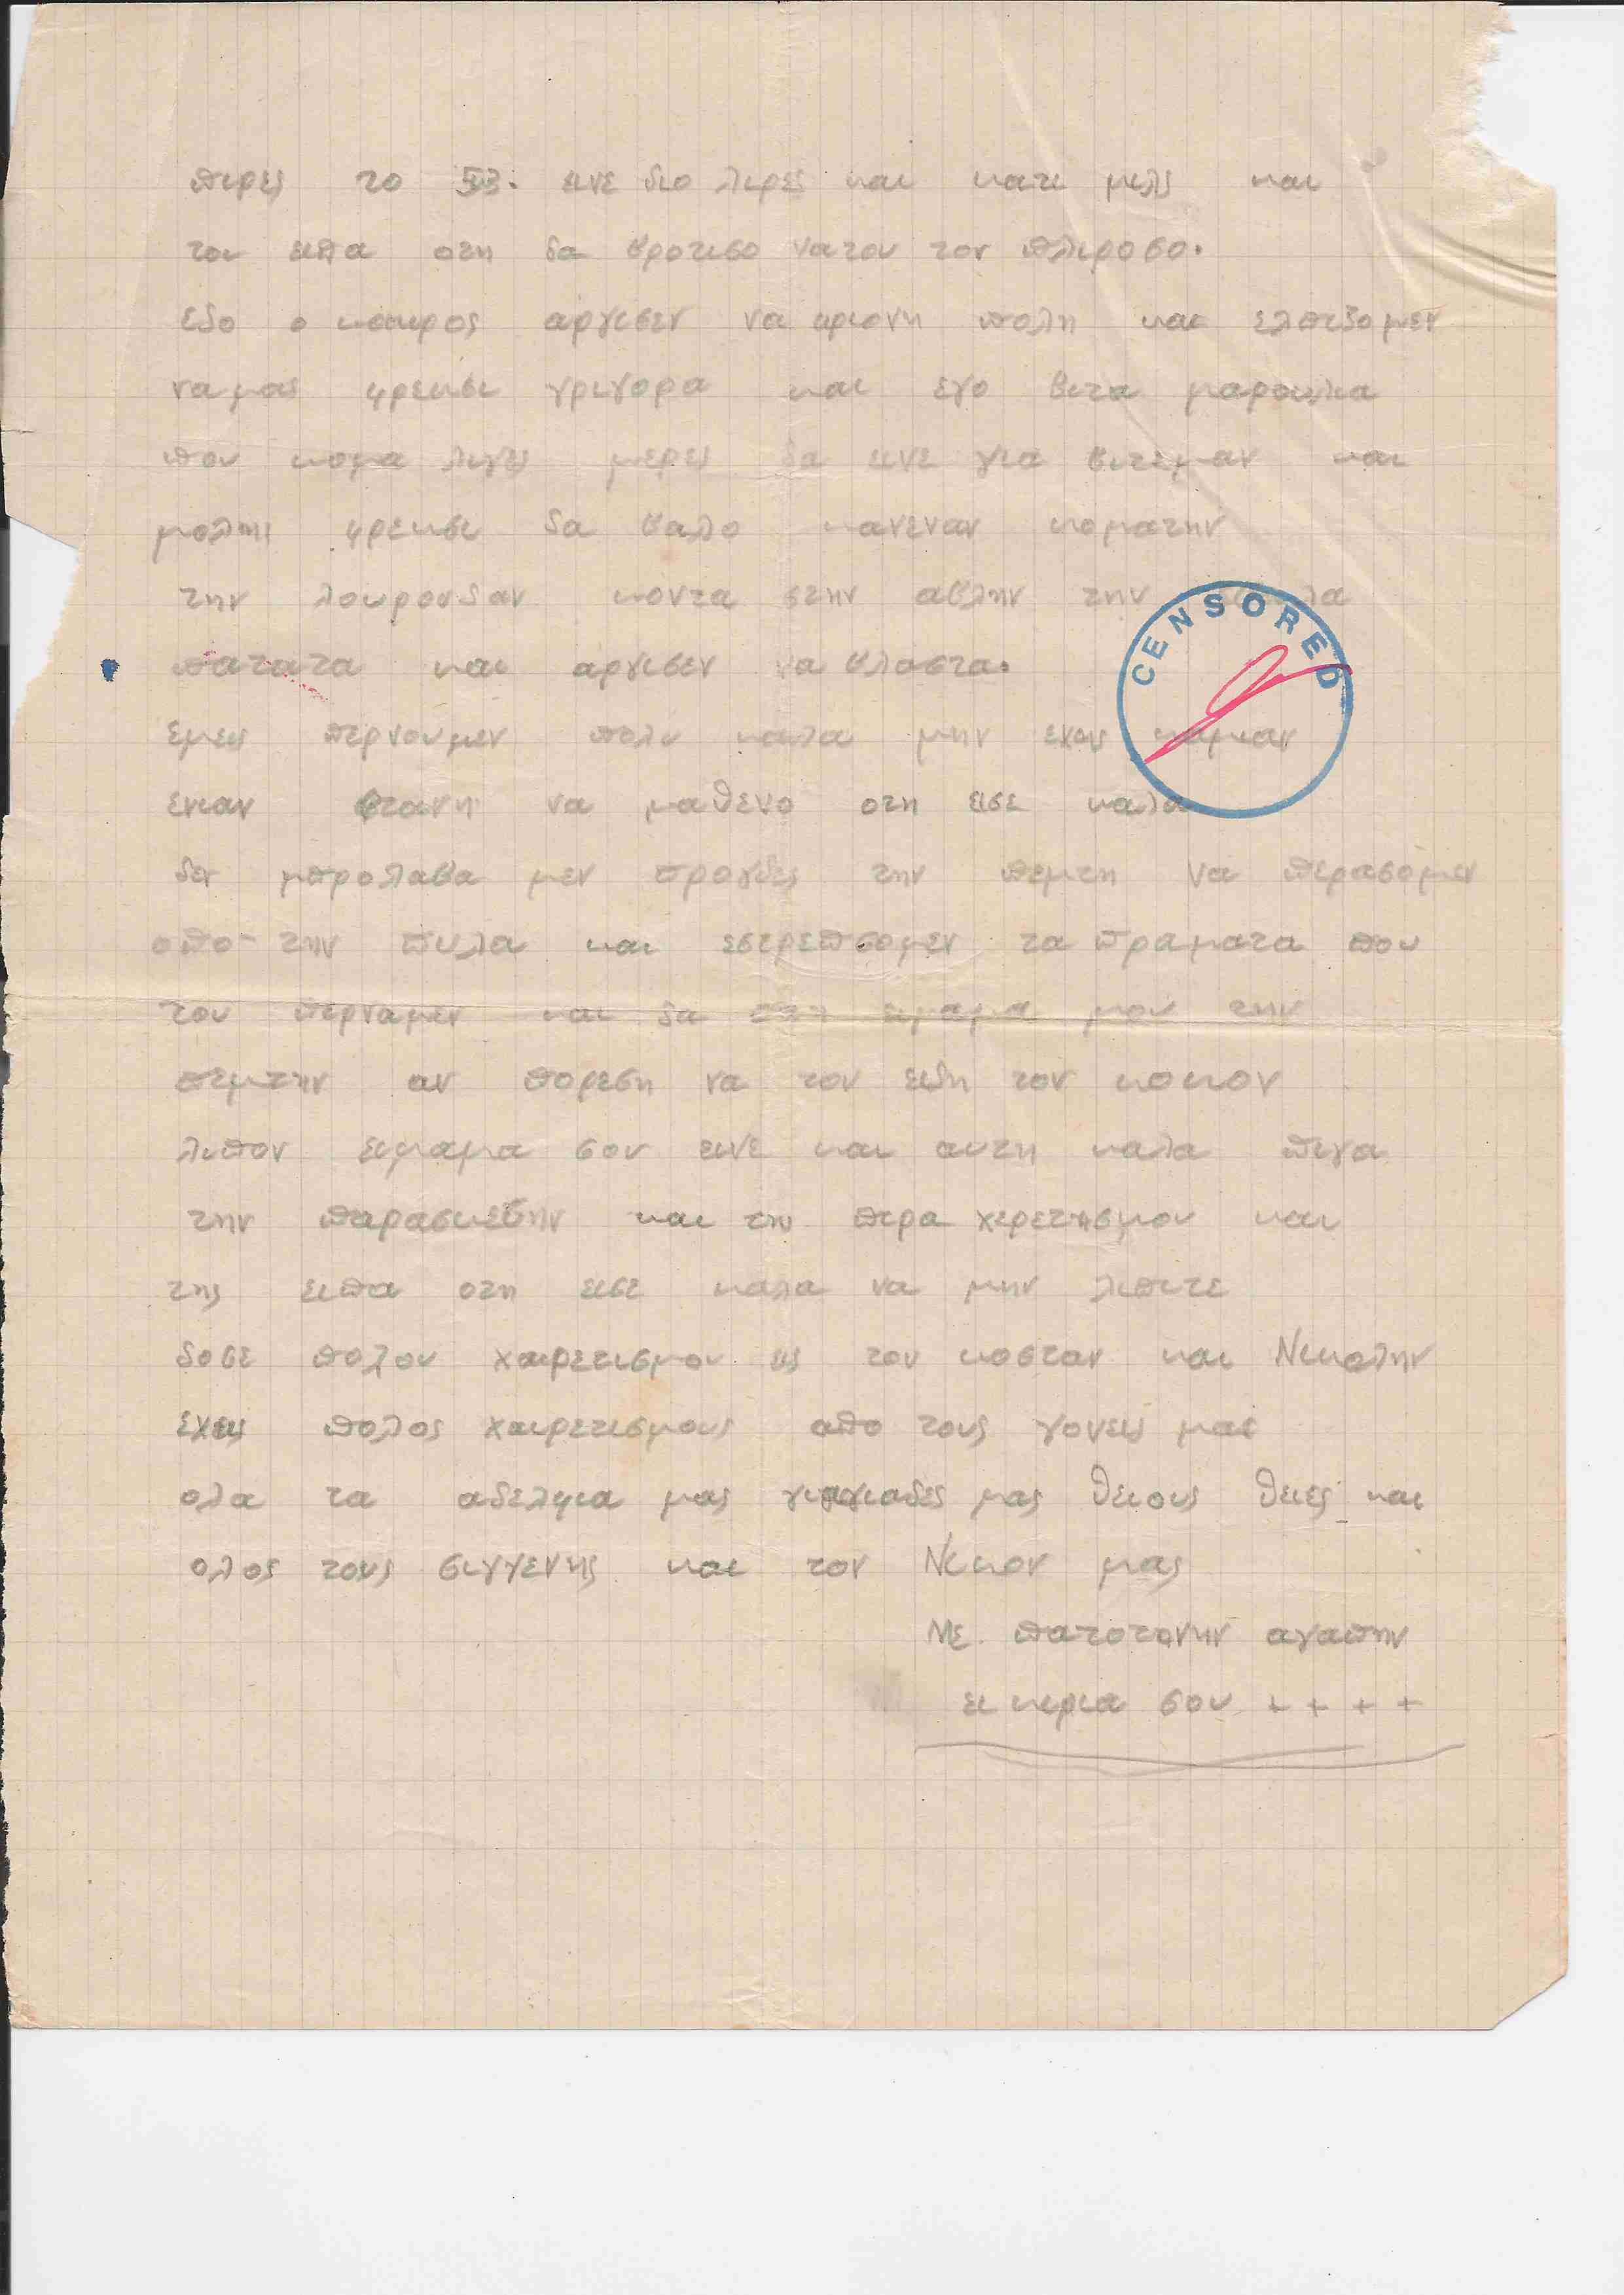 πιρες το 53. εινε διο λιρες και κατι μιλς και
του ειπα οτη δα βροτισο νατου τον πλιροσο.
εδο ο καιρος αργισεν να κριονη πολη και ελπιζομεν
ναμας βρεκσι γριγορα και εγο βιτα μαρουλια
που κομα λιγες μερες δα εινε για βιτεμαν και
μολις βρεκσι δα βαλο κανεναν κοματην
την λουρουδαν κοντα στην αβλην την
πατατα και αργισεν να βλαστα.
εμεις περνουμεν πολυ καλα μην εχεις καμιαν
ενιαν φτανη να μαθενο οτη εισε καλα
δεν μπρολαβα μεν προχδες την πεμτη να περασομεν
οπο την πυλα και εστρεπσομεν τα πραματα που
του περναμεν και δα ειμαμα μου την
πεμτην αν πορεση να τον ειδη τον κοκον
λιπον ειμαμα σου εινε και αυτη καλα πιγα
την παρασκεβην και τη πιρα χερετησμου και
της ειπα οτη εισε καλα να μην λιπιτε
δοσε πολου χαιρετισμου ις τον κοσταν και Νικολην
εχεις πολος χαιρετισμους απο τους γονεις μας
ολα τα αδελφια μας γιαγιαδες μας θειους θειες και
ολος τους σιγγενης και τον Νικον μας
Με παντοτινην αγαπην
ει κιρια σου + + + +
CENSORED